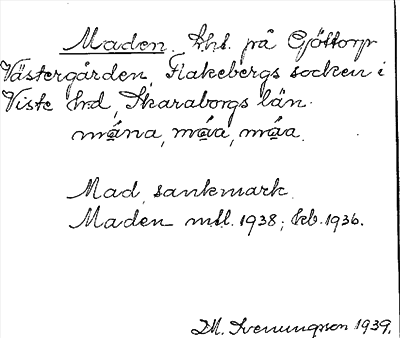 Maden, khs. på Gjöttorp
Västergården, Flakebergs socken i
Viste hrd, Skaraborgs län.
måna, måa, måa.
Mad, sankmark.
Maden msll. 1938; kb. 1936.
M. Svenungson 1939.